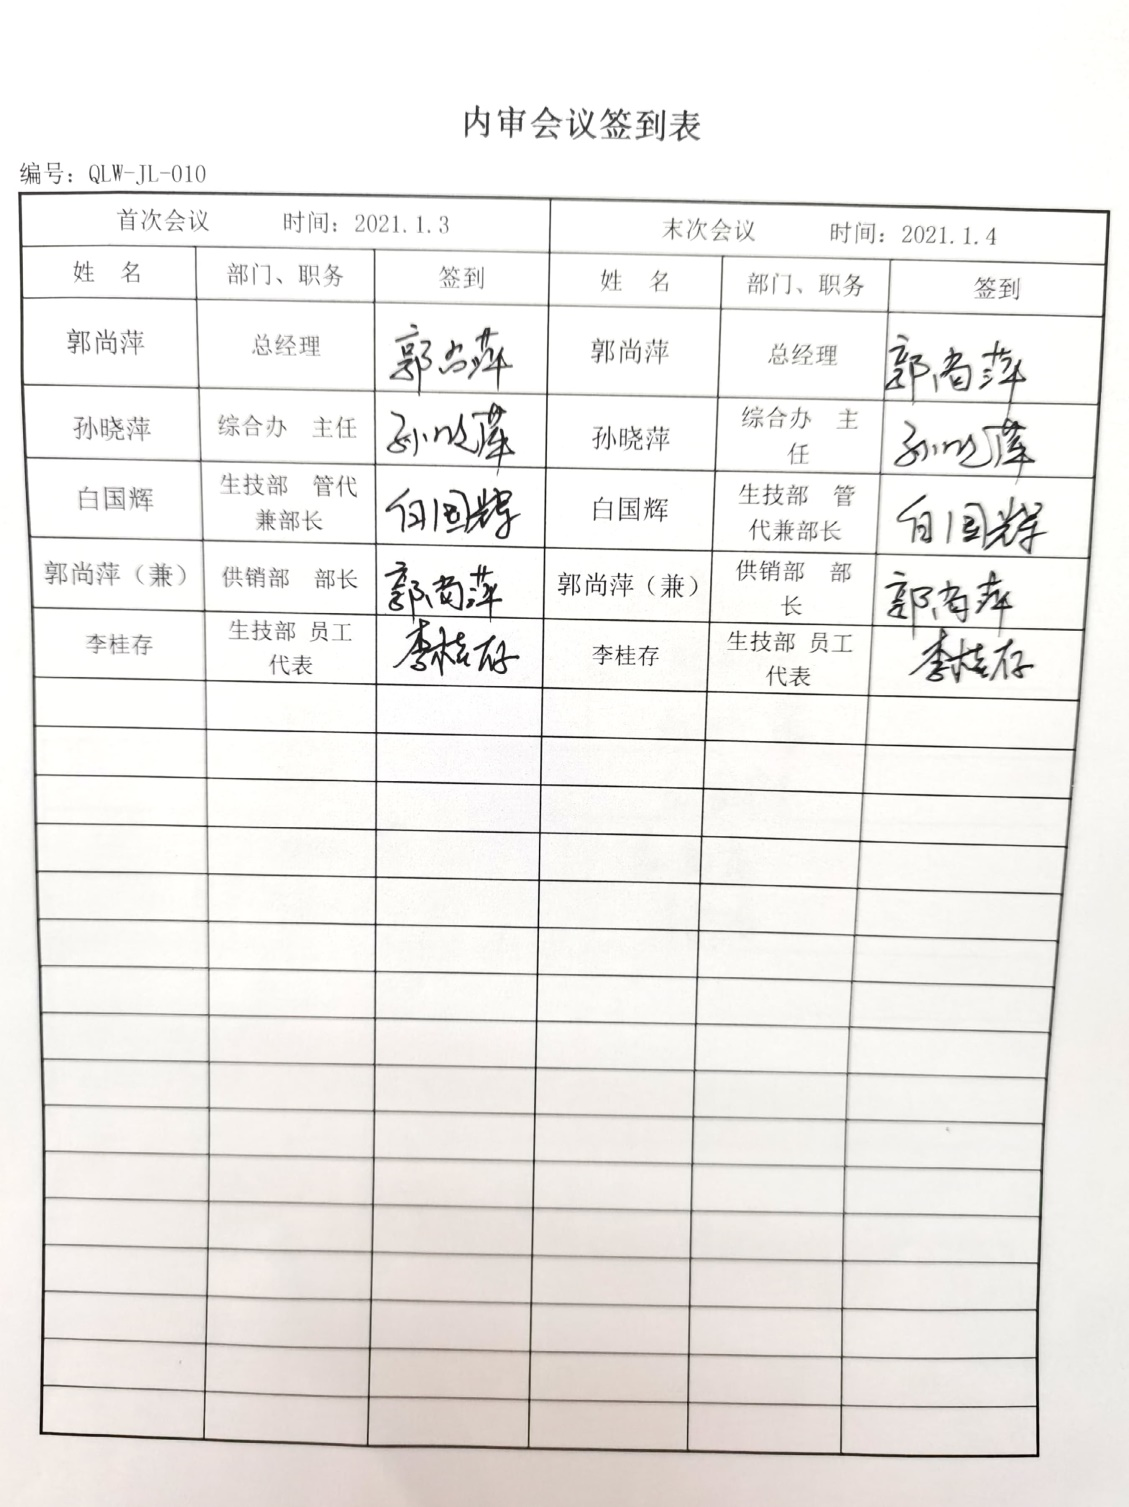 内审会议签到表
编号：QLW-JL-010
首次会议 时间：2021.1.3 末次会议 时间：2021.1.4
姓 名 部门、职务 签到 姓 名 部门、职务 签到
郭尚萍 总经理 郭尚萍 郭尚萍 总经理 郭尚萍
孙晓萍 综合办 主任 孙晓萍 孙晓萍 综合办 主
任 孙晓萍
白国辉 生技部 管代
兼部长 白国辉 白国辉 生技部 管
代兼部长 白国辉
郭尚萍（兼） 供销部 部长 郭尚萍 郭尚萍（兼） 供销部 部
长 郭尚萍
李桂存 生技部 员工
代表 李桂存 李桂存 生技部 员工
代表 李桂存